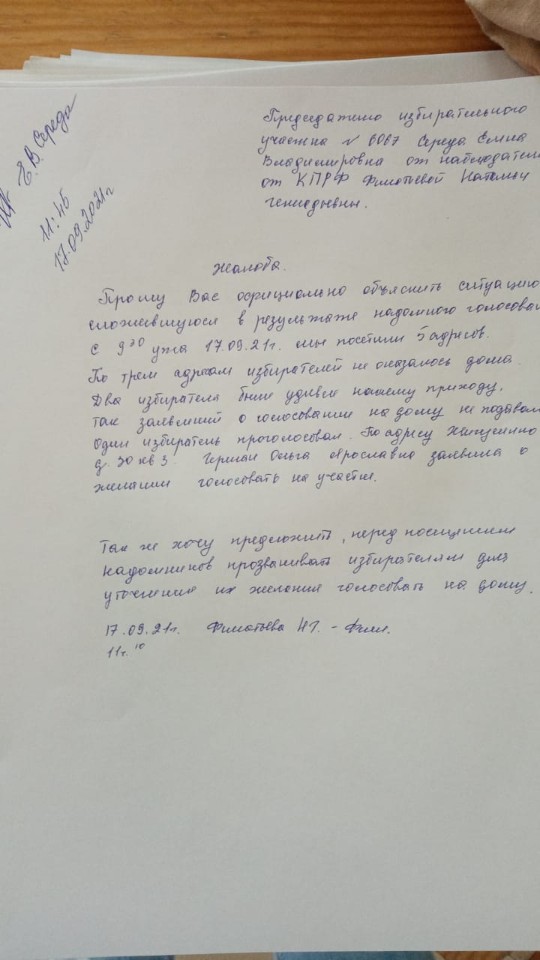 Е.В. Середа
11:45
17.09.2021г
Председателю избирательного
участка N 6067 Середа Елена
Владимировна от наблюдателя
от КПРФ Филатьевой Натальи
генадьевны.
Жалоба.
Прошу Вас официально объяснить ситуацию
сложевшуюся в результате надомного голосован
С 9 30 утра 17.09.21г. мы посетили 5 адресов.
По трем адресам избирателей не оказалось дома.
Два избирателя были удивле нашему приходу,
так заявлений о голосовании на дому не подавали
Один избиратель проголосовал. По адресу
д. 30 кв 3. Герман Ольга Ярославна заявила о
желании голосовать на участке.
Так же хочу предложить, перед посещением
надомников прозванивать избирателям для
уточнения их желания голосовать на дому.
17.09.21г. Филатьева Н.Г. - Фил.
11ч. 10